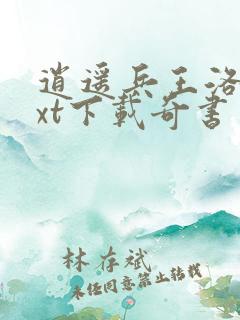 逍遥兵王洛
xt下载奇书
林存斌
未经同意禁止转载